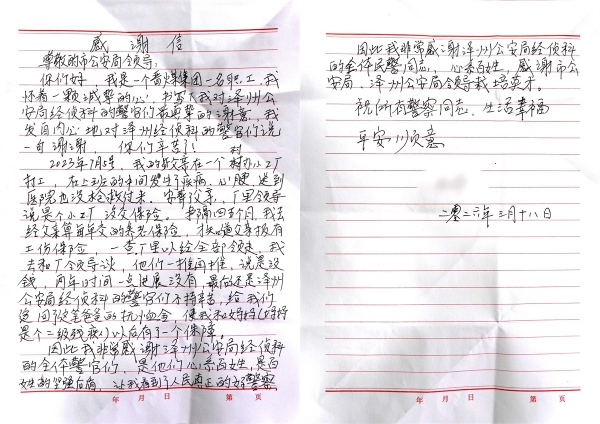 感谢信
尊敬的市公安局领导:
你们好，我是一个晋煤集团一名职工，我
怀着一颗诚挚的心，书写下我对泽州公
安局经侦科的警官们最真挚的谢意，我
发自内心地对泽州经侦科的警官们说
一句谢谢，你们辛苦了！
村
2023年7月，我的父亲在一个村办小工厂
打工，在上班的中间发生了疾病，心梗，送到
医院也没抢救过来，安葬父亲，厂里领导
说是个小工厂没交保险。时隔四五个月，我去
经父亲算每年交的养老保险，才知道父亲投有
工伤保险，一查厂里以经全部领走，我
去和厂令领导谈，他们一推再推，说是没
钱，两年时间一点进展没有，最后还是泽州
公安局经侦科的警官们不持辛苦，给我们
追回张爸爸的抚恤金，使我和妈妈(妈妈
是个二级残疾人)以后有了个保障。
因此我非常感谢泽州公安局经侦科
的全体警官们，是他们心系百姓，是百
姓的坚强后盾，让我看到了人民真正的好警察，
年 月 日 第 页
因此我非常感谢泽州公安局经侦科
的全体民警同志，心系百姓，感谢市公
安局，泽州公安局领导栽培英才。
祝所有警察同志，生活幸福
平安顺意
二零二六年三月十八日
年 月 日 第 页